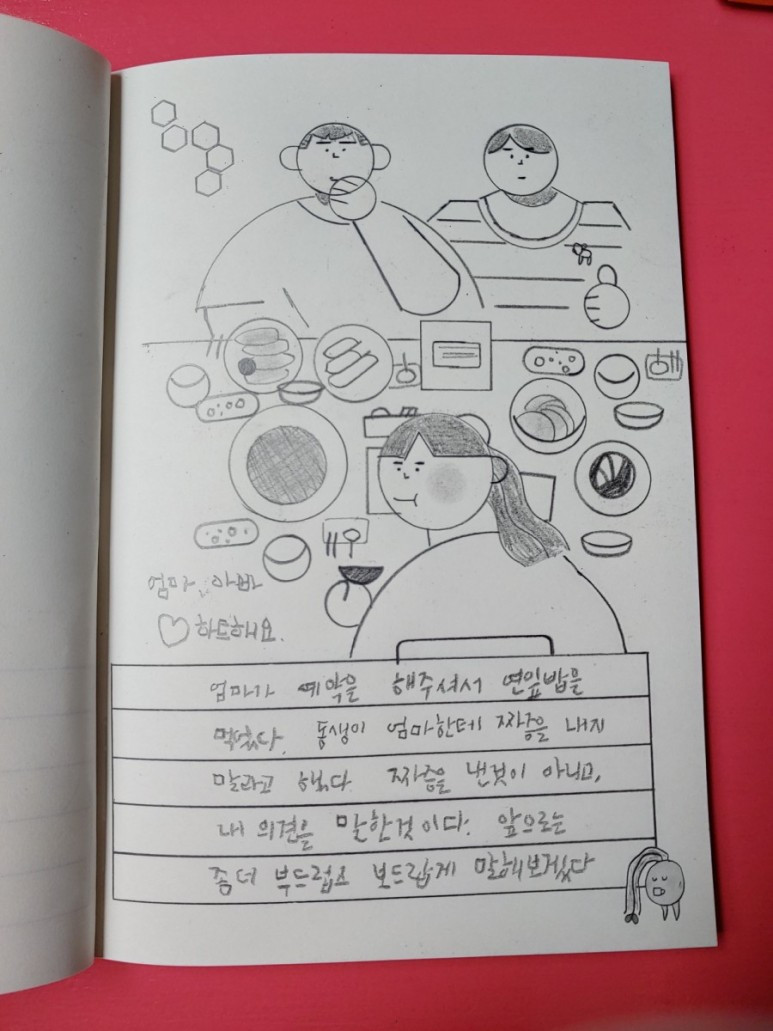 엄마, 아빠
♡ 하드해요.
엄마가 예약을 해주셔서 연잎밥을
먹었다. 동생이 엄마한테 짜증을 내지
말라고 했다. 짜증을 낸것이 아니고,
내 의견을 말한것이다. 앞으로는
좀더 부드럽고 보드랍게 말해보겠다